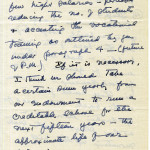 pew high salaries - persons
reducing the no. of students
& accepting the
training as outlined by you
under paragraph 4 — (future
of P.M.) If it is necessary,
I think we should take
a certain sum yearly from
our endowment to run a
creditable school for the
next fifteen years - the
approximate life of our